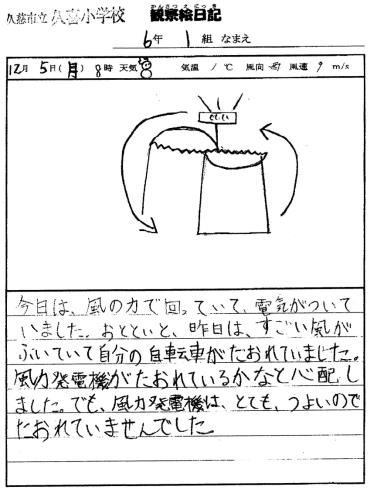 久慈市立久喜小学校 観察絵日記
かんさつえにっき
6年 1組 なまえ
12月 5日(月) 8時 天気 気温 1℃ 風向 風速 9 m/s
今日は、風の力で回っていて、電気がついて
いました。おとといと、昨日は、すごい風が
ふいていて自分の自転車がたおれていました。
風力発電機がたおれているかなと心配し
ました。でも、風力発電機は、とても、つよいので
たおれていませんでした